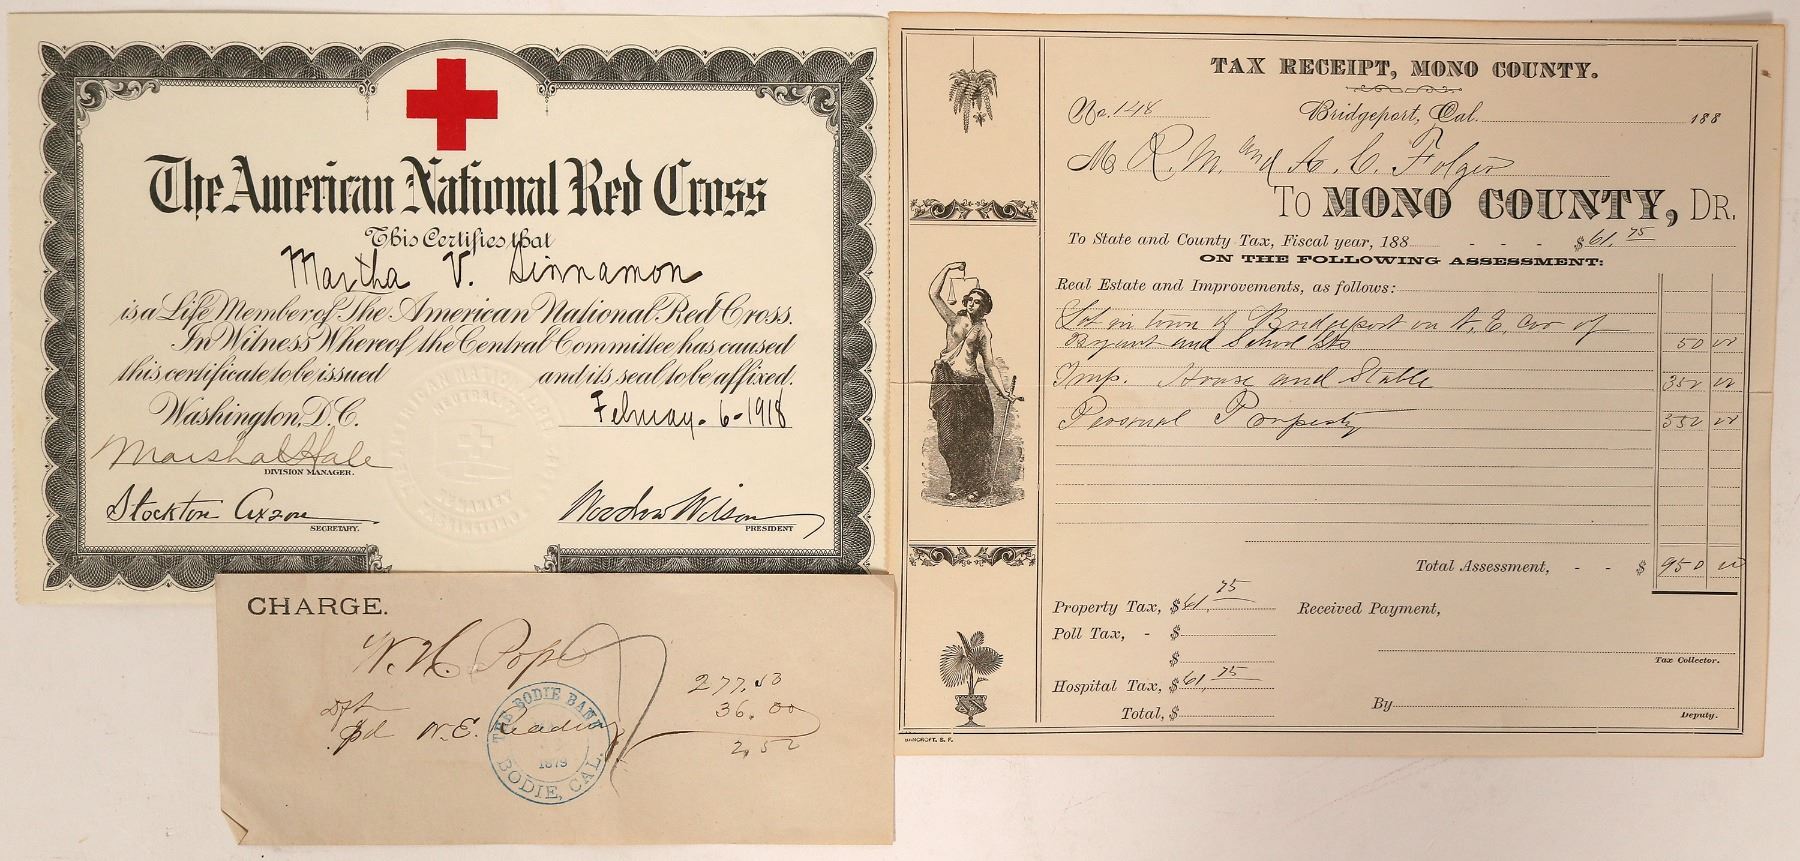 The American National Red Cross
This Certifies that
Martha V. Sinnamon
is a Life Member of The American National Red Cross.
In Witness Whereof the Central Committee has caused
this certificate to be issued and its seal to be affixed.
Washington, D.C. February 6-1918
Marshal Hale
DIVISION MANAGER.
Stockton Axson
SECRETARY.
Woodrow Wilson
PRESIDENT
CHARGE.
277.53
36.00
pd W.E.
2,52
THE BODIE BANK
1879
BODIE, CAL.
TAX RECEIPT, MONO COUNTY.
No. 148 Bridgeport, Cal. 188
M R. M. and A. C. Folger
TO MONO COUNTY, DR.
To State and County Tax, Fiscal year, 188 - - - $61.75
ON THE FOLLOWING ASSESSMENT:
Real Estate and Improvements, as follows:
Lot in town of Bridgeport on N. E. Cor of
Bryant and School Sts 50 00
Imp. House and Stable 350 00
Personal Property 550 00
Total Assessment, - - $ 950 00
Property Tax, $61.75 Received Payment,
Poll Tax, - $
$
Tax Collector.
Hospital Tax, $61.75
By
Total, $
Deputy.
BANCROFT, S. F.